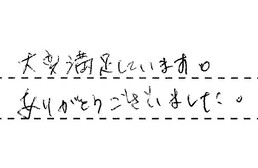 大変満足しています。
ありがとうございました。